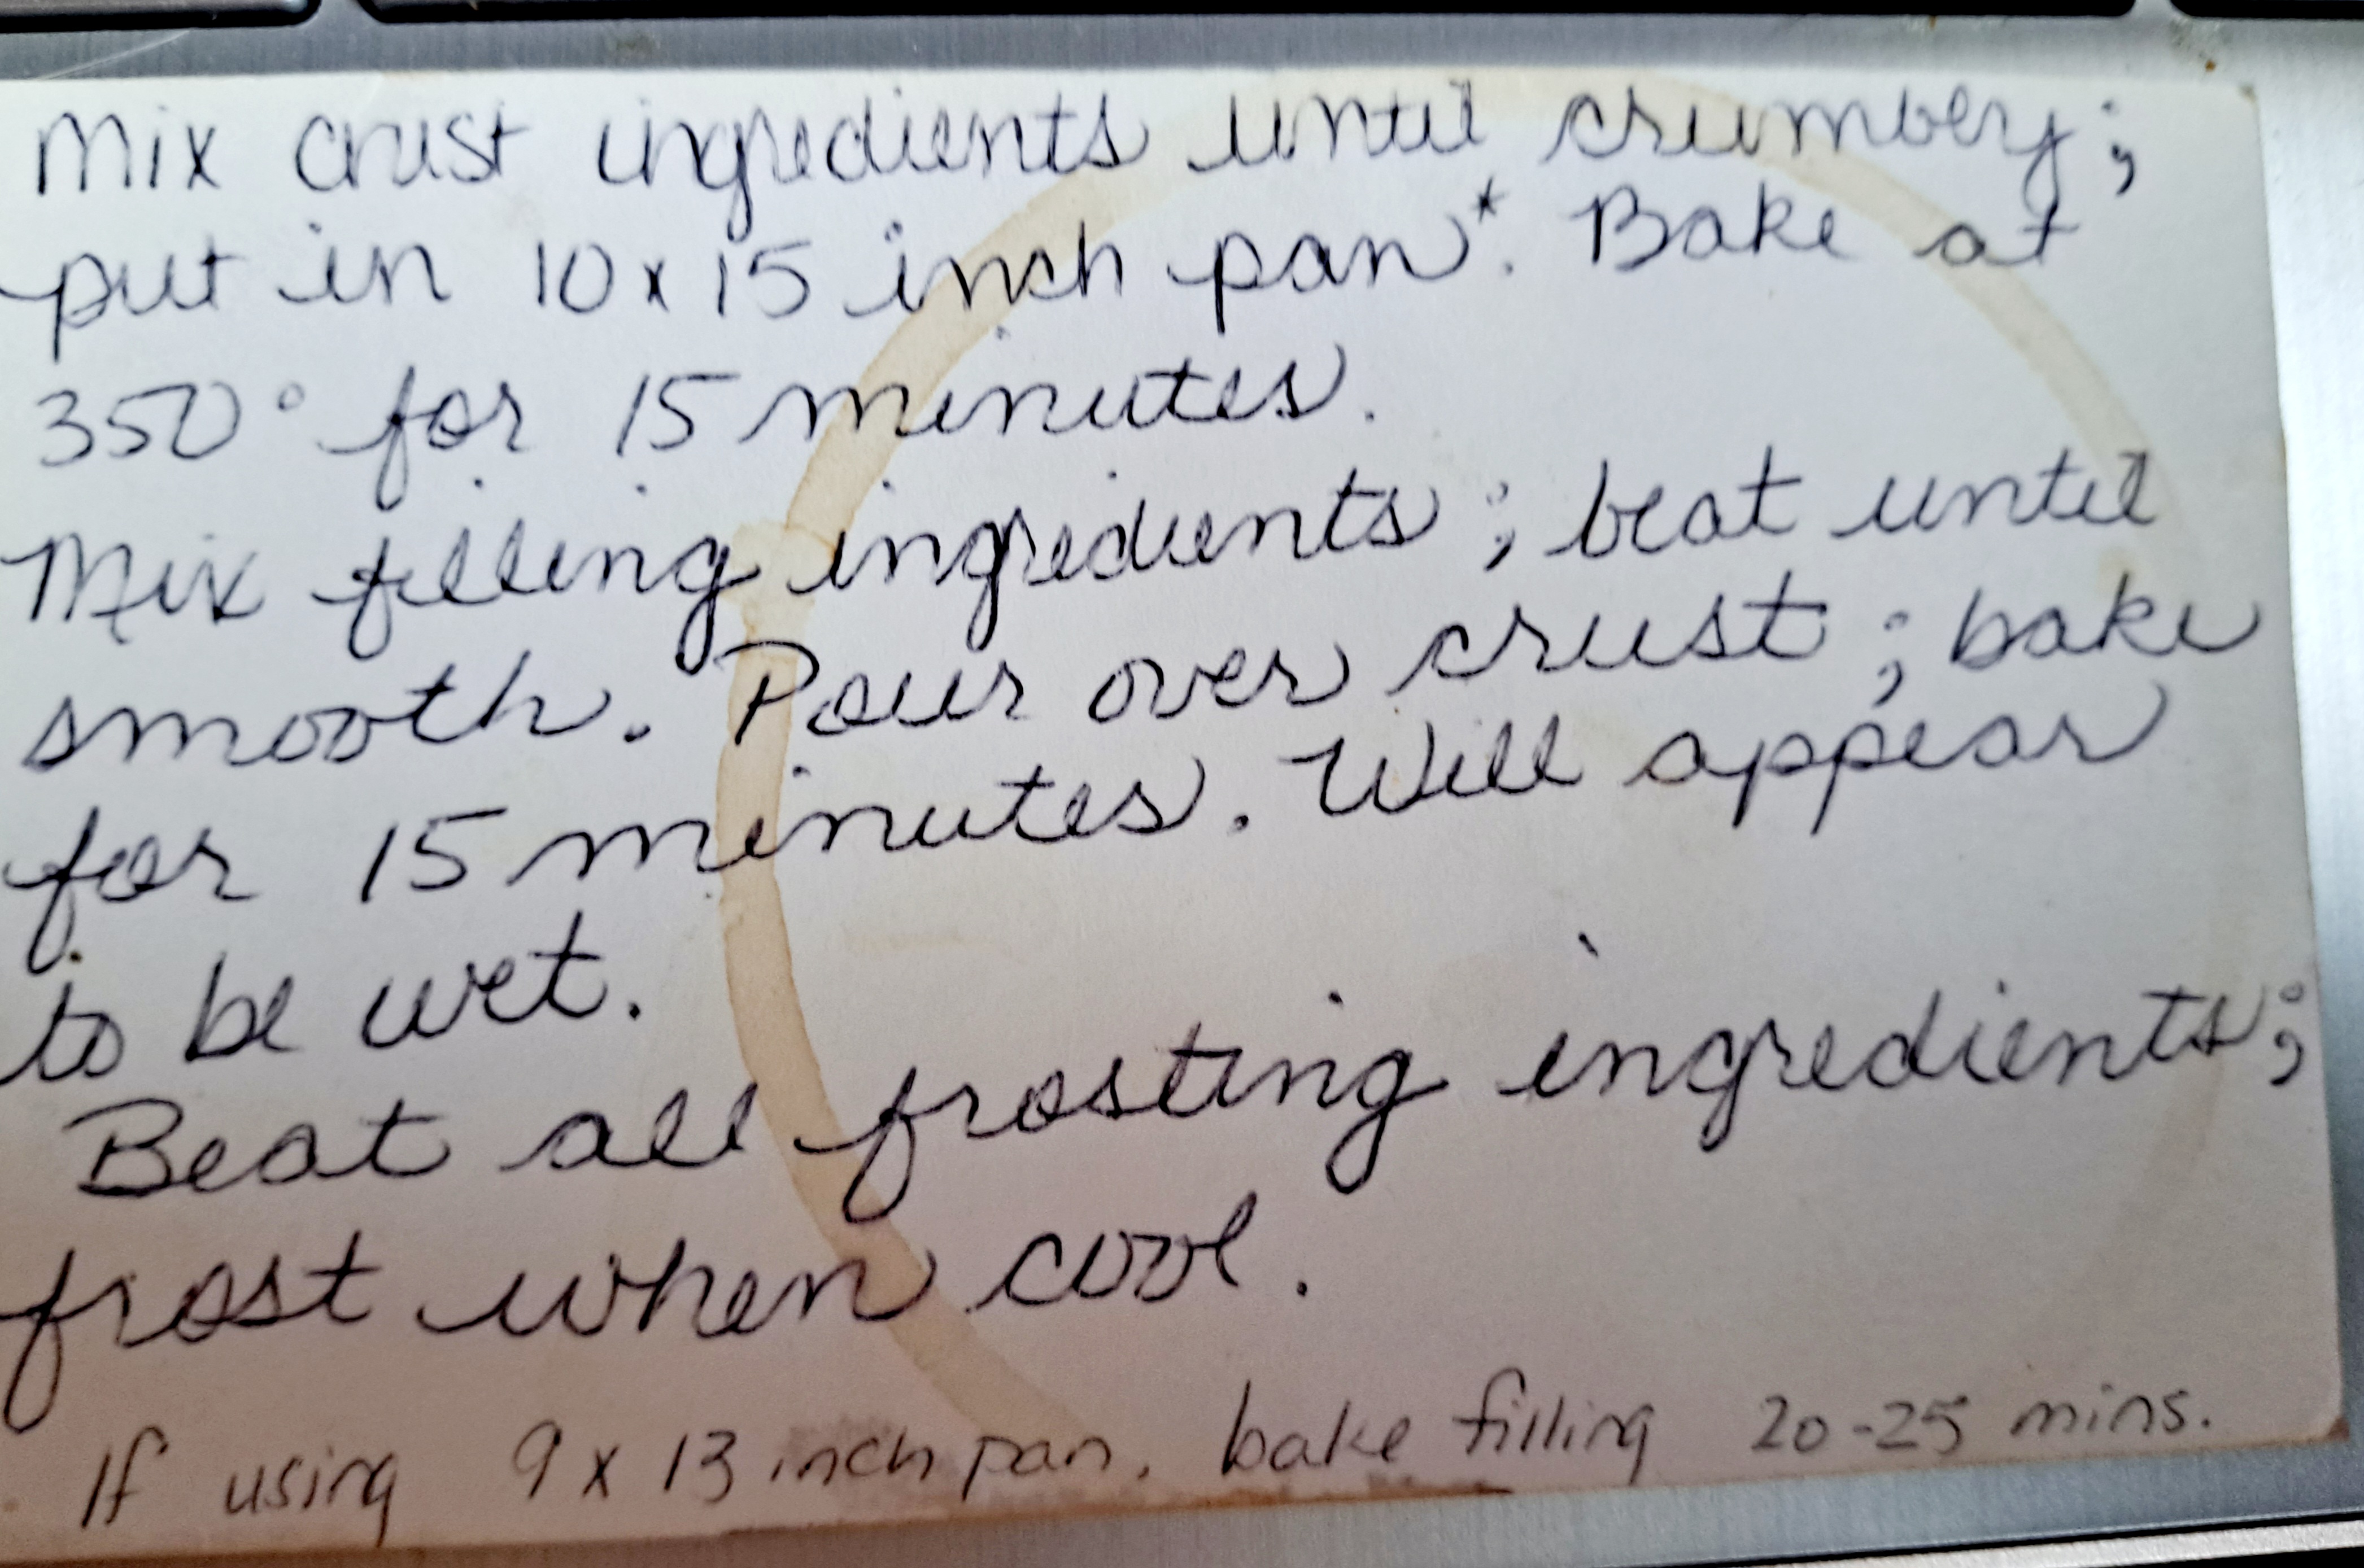 Mix crust ingredients until crumbly;
put in 10 x 15 inch pan*. Bake at
350° for 15 minutes.
Mix filling ingredients; beat until
smooth. Pour over crust; bake
for 15 minutes. Will appear
to be wet.
Beat all frosting ingredients;
frost when cool.
If using 9 x 13 inch pan, bake filling 20-25 mins.